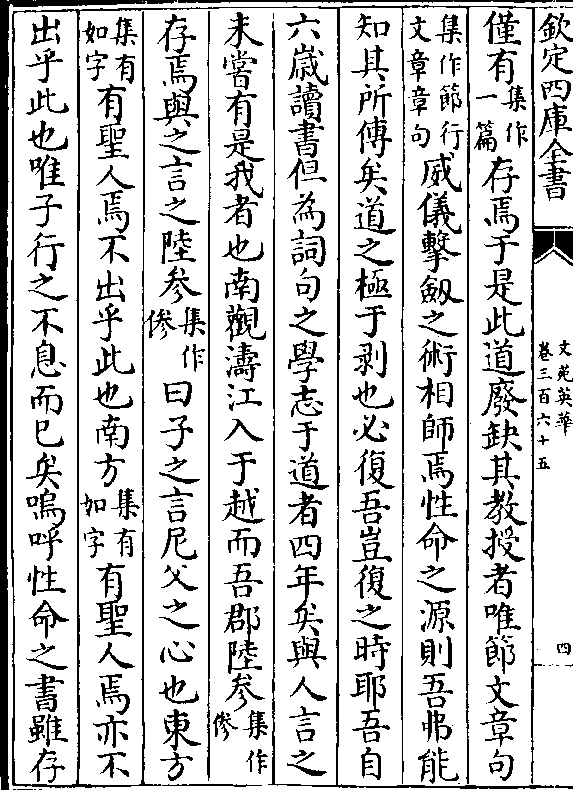 欽定四庫全書
文苑英華
卷三百六十五
四
僅有集作一篇存焉于是此道廢缺其教授者唯節文章句
集作節行文章章句威儀擊劔之術相師焉性命之源則吾弗能
知其所傳矣道之極于剥也必復吾豈復之時耶吾自
六歳讀書但為詞句之學志于道者四年矣與人言之
未嘗有是我者也南觀濤江入于越而吾郡陸参集作傪
存焉與之言之陸参集作傪曰子之言尼父之心也東方
集有如字有聖人焉不出乎此也南方集有如字有聖人焉亦不
出乎此也唯子行之不息而已矣嗚呼性命之書雖存